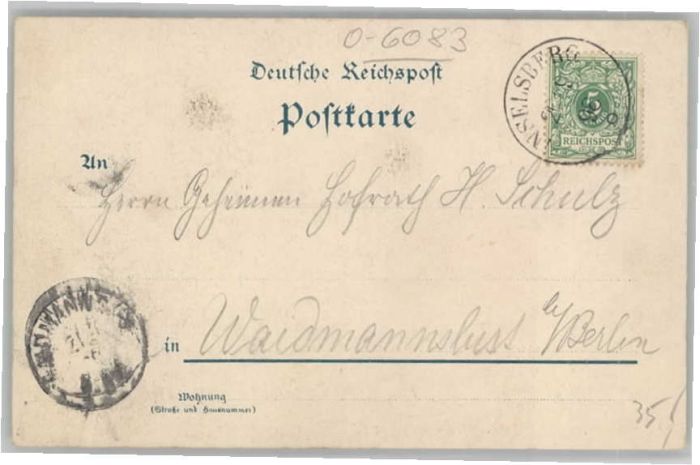 0-6083
Deutsche Reichspost
Postkarte
INSELSBERG
5
REICHSPOST
An
Herrn Geheimen Hofrath H. Schulz
in Waidmannslust b/Berlin
Wohnung
(Straße und Hausnummer)
35